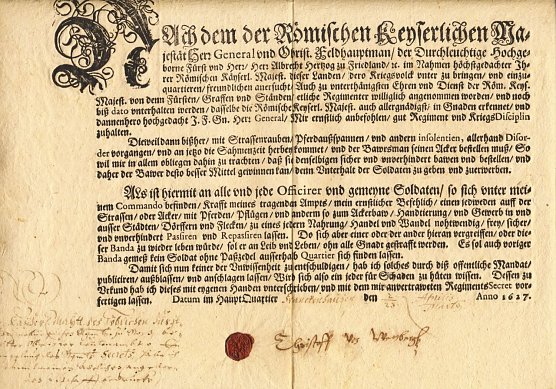 NAch dem der Römischen Keyserlichen Ma-
jestät Herr General vnd Obrist. Feldhauptman/ der Durchleuchtige Hochge-
borne Fürst vnd Herr/ Herr Albrecht Hertzog zu Friedland/ ꝛc. im Nahmen höchstgedachter Ih-
rer Römischen Käyserl. Majest. dieser Landen/ dero Kriegsvolck vnter zu bringen/ vnd einzu-
quartieren/ freundlichen anersucht/ Auch zu vnterthänigsten Ehren vnd Dienst der Röm. Keys.
Majest. von dem Fürsten/ Graffen vnd Ständen/ etliche Regimenter willigst angenommen worden/ vnd noch
biß dato vnterhalten werden/ dasselbe die Römische Keyserl. Majest. auch allergnädigst/ in Gnaden erkennet/ vnd
dannenhero hochgedacht J. F. Gn. Herr General/ Mir ernstlich anbefohlen/ gut Regiment vnd KriegsDisciplin
zuhalten.
Dieweil dann bißher/ mit Strassenrauben/ Pferdaußspannen/ vnd andern insolentien, allerhand Disor-
der vorgangen/ vnd an jetzo die Sahmenzeit herbey kommet/ vnd der Bawrsman seinen Acker bestellen muß/ So
wil mir in allem obliegen dahin zu trachten/ daß sie denselbigen sicher vnd vnverhindert bawen vnd bestellen/ vnd
daher der Bawer desto besser Mittel gewinnen kan/ denn Vnterhalt der Soldaten zu geben vnd zuerwerben.
Als ist hiermit an alle vnd jede Officirer vnd gemeyne Soldaten/ so sich vnter mei-
nem Commando befinden/ Krafft meines tragenden Ampts/ mein ernstlicher Befehlich/ einen jedweden auff der
Strassen/ oder Acker/ mit Pferden/ Pflügen/ vnd andern so zum Ackerbaw/ Handtierung/ vnd Gewerb in vnd
ausser Städten/ Dörffern vnd Flecken/ zu eines jedern Nahrung/ Handel vnd Wandel nohtwendig/ frey/ sicher/
vnd vnverhindert Pasiiren vnd Repasiiren lassen. Do sich aber einer oder der ander hieran vergreiffen/ oder die-
ser Banda zu wieder leben würde/ sol er an Leib vnd Leben/ ohn alle Gnade gestrafft werden. Es sol auch voriger
Banda gemeß kein Soldat ohne Paßzedel ausserhalb Quartier sich finden lassen.
Damit sich nun keiner der Vnwissenheit zu entschuldigen/ hab ich solches durch diß offentliche Mandat/
publiciren/ außblasen/ vnd anschlagen lassen/ Wird sich also ein jeder für Schaden zu hüten wissen. Dessen zu
Vrkund hab ich dieses mit eygenen Handen vnterschrieben/ vnd mit dem mir anvertraweten Regiments Secret vor-
fertigen lassen. Datum im HauptQuartier den Anno 1627.